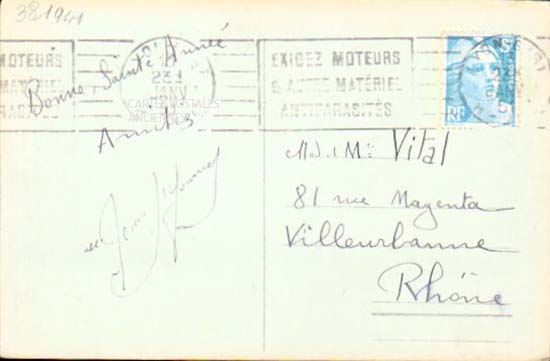 381941
MOTEURS
MATÉRIEL
Bonne, Santé Année
Amitiés
231
JANV
CARTES POSTALES
EXIGEZ MOTEURS
& AUTRE MATÉRIEL
ANTIPARASITÉS
RF
M. & Me Vital
81 rue Magenta
Villeurbanne
Rhône